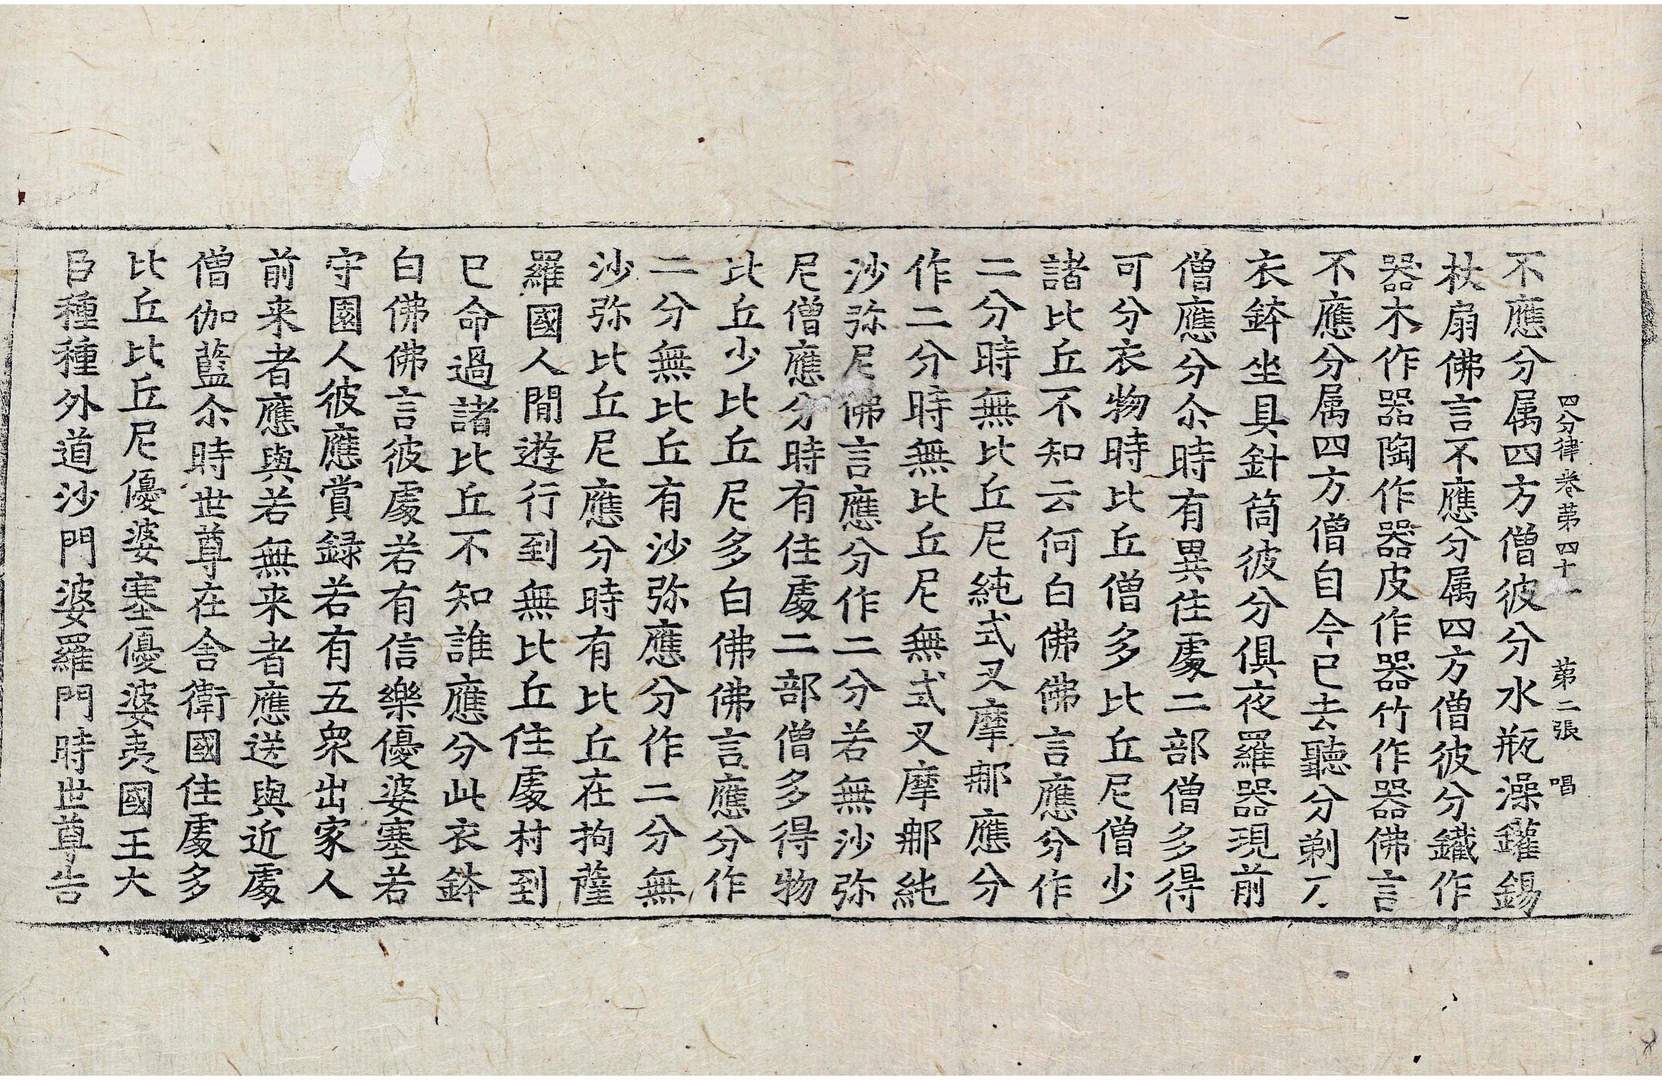 四分律卷第四十一 第二張 唱
不應分属四方僧彼分水瓶澡鑵錫
杖扇佛言不應分属四方僧彼分鐵作
器木作器陶作器皮作器竹作器佛言
不應分属四方僧自今已去聽分剃刀
衣鉢坐具針筒彼分俱夜羅器現前
僧應分尒時有異住處二部僧多得
可分衣物時比丘僧多比丘尼僧少
諸比丘不知云何白佛佛言應分作
二分時無比丘尼純式叉摩那應分
作二分時無比丘尼無式叉摩那純
沙弥尼佛言應分作二分若無沙弥
尼僧應分時有住處二部僧多得物
比丘少比丘尼多白佛佛言應分作
二分無比丘有沙弥應分作二分無
沙弥比丘尼應分時有比丘在拘薩
羅國人間遊行到無比丘住處村到
已命過諸比丘不知誰應分此衣鉢
白佛佛言彼處若有信樂優婆塞若
守園人彼應賞録若有五衆出家人
前来者應與若無来者應送與近處
僧伽藍尒時世尊在舍衛國住處多
比丘比丘尼優婆塞優婆夷國王大
臣種種外道沙門婆羅門時世尊告